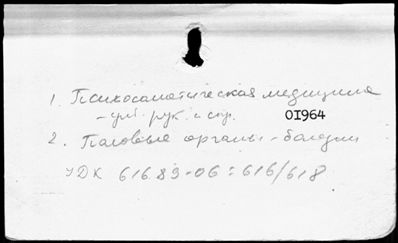 1. Психосоматическая медицина
- уч. рук. и спр. OI964
2. Половые органы - болезни
УДК 616.89-06:616/618